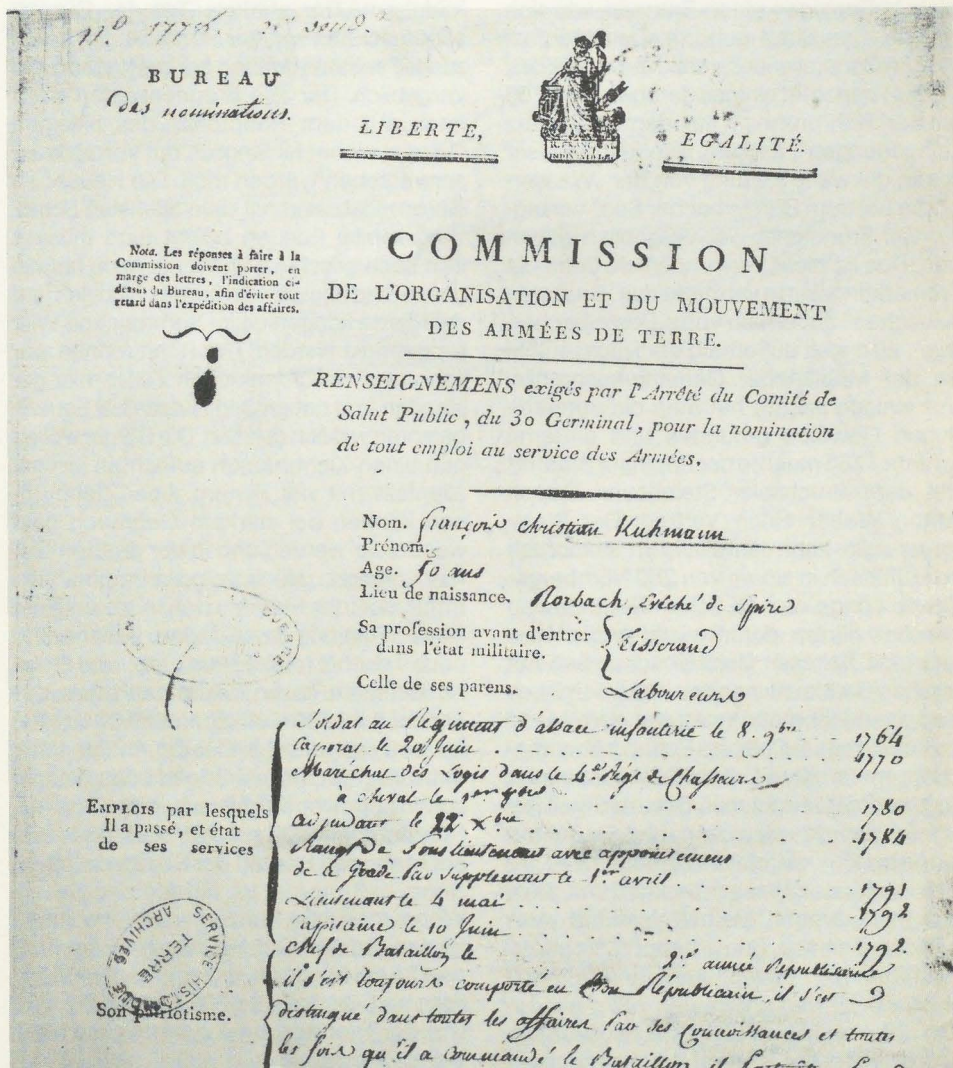 n.º 1775.
BUREAU
des nominations.
LIBERTE,
EGALITÉ.
Nota. Les réponses à faire à la
Commission doivent porter, en
marge des lettres, l'indication ci-
dessus du Bureau, afin d'éviter tout
retard dans l'expédition des affaires.
COMMISSION
DE L'ORGANISATION ET DU MOUVEMENT
DES ARMÉES DE TERRE.
RENSEIGNEMENS exigés par l'Arrêté du Comité de
Salut Public, du 30 Germinal, pour la nomination
de tout emploi au service des Armées.
Nom. françois christian Kuhmann
Prénom.
Age. 50 ans
Lieu de naissance. Rorbach, Evêché de Spire
Sa profession avant d'entrer
dans l'état militaire.
Tisserand
Celle de ses parens. Laboureurs
EMPLOIS par lesquels
Il a passé, et état
de ses services
Soldat au Régiment d'alsace infanterie le 8. 9bre 1764
Caporal le 20 Juin 1770
Maréchal des Logis dans le 4e Régt de Chasseurs
à cheval le 1780
adjudant le 22 Xbre 1784
Rang de Souslieutenant avec appointemens
de ce Grade par supplement le 1er avril 1791
Lieutenant le 4 mai 1792
Capitaine le 10 Juin 1792.
Chef de Bataillon le 2me année Républicaine
Son patriotisme.
il s'est toujours comporté en bon Républicain, il s'est
distingué dans toutes les affaires par ses Connoissances et toutes
les fois qu'il a commandé le Bataillon il
SERVICE HISTORIQUE
TERRE
ARCHIVES